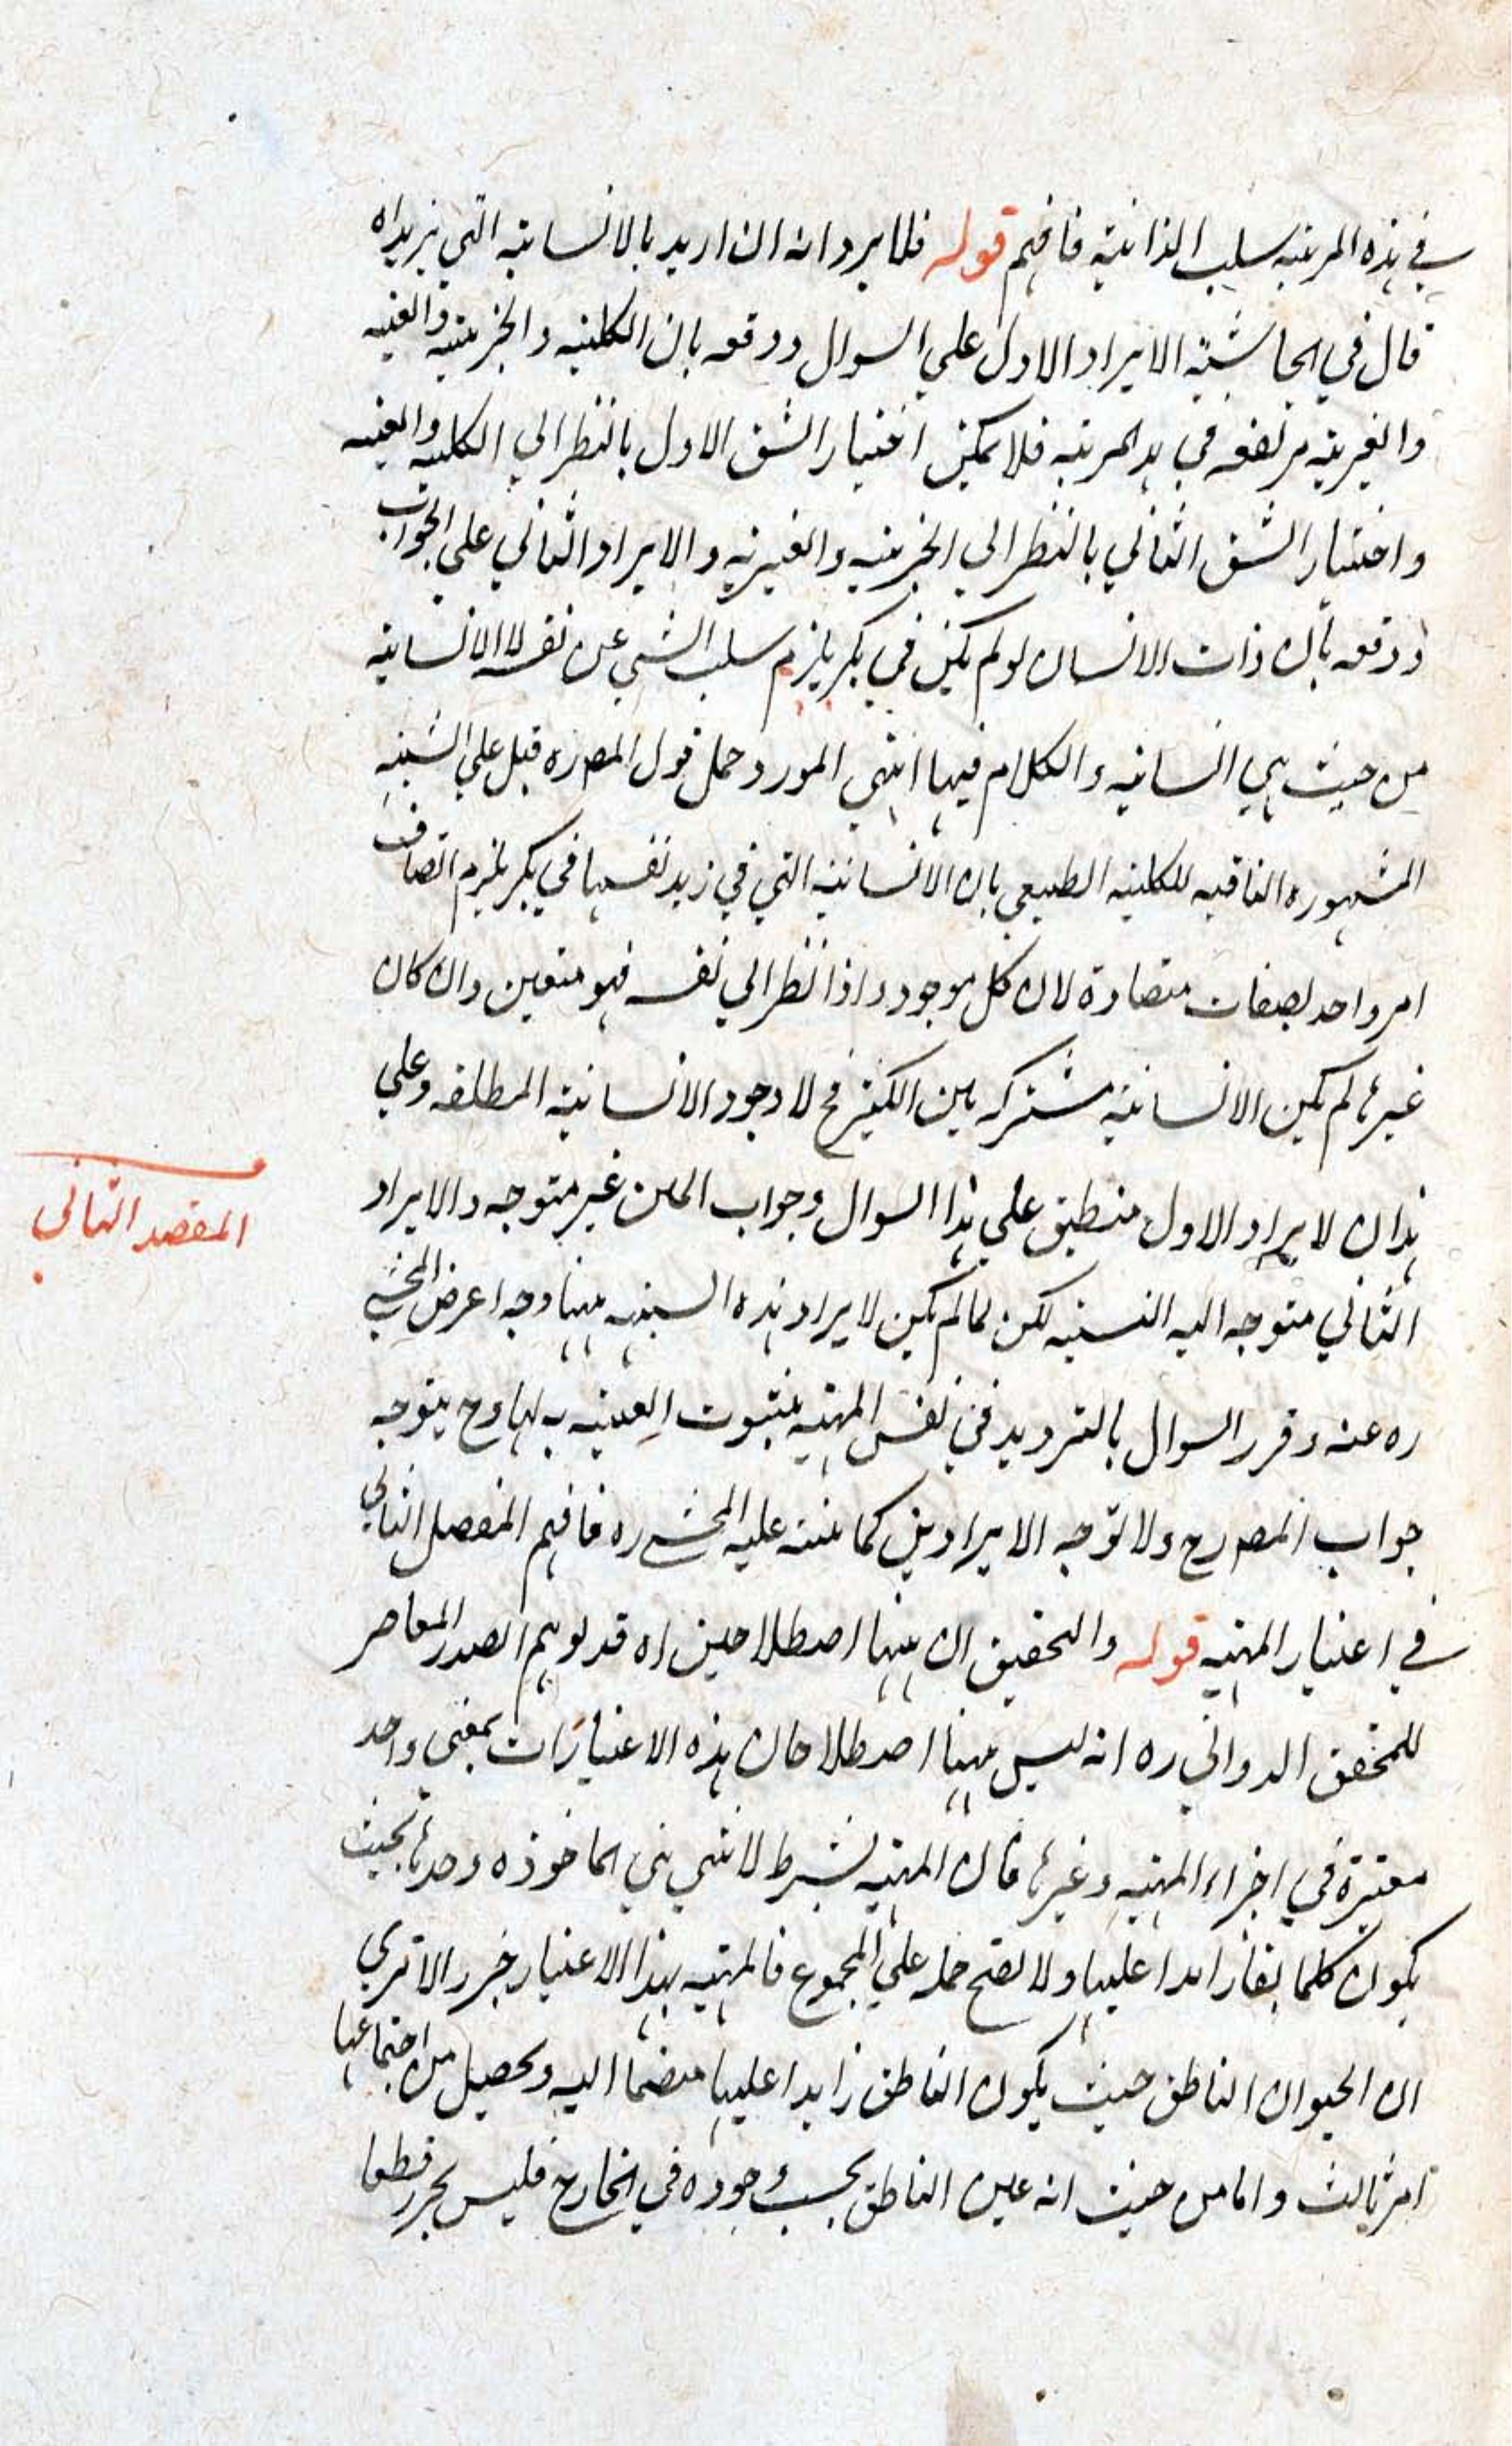 في هذه المرتبة سلب الذاتية فافهم قوله فلا يرد انه ان اريد بالانسانية التي بزيد اه
قال في الحاشية الايراد الاول علي السوال ودفعه بان الكلية والجزيية والعينية
والغيرية مرتفعة في هذ المرتبة فلا يمكن اختيار الشق الاول بالنظر الي الكلية والعينية
واختيار الشق الثاني بالنظر الي الجزيية والغيرية والايراد الثاني علي الجواب
ودفعه بان ذات الانسان لو لم يكن في بكر يلزم سلب الشي عن نفسه لا الانسانية
من حيث هي انسانية والكلام فيها انتهي المورد حمل قول المص ره قيل علي الشبهة
المشهورة النافية للكلية الطبيعي بان الانسانية التي في زيد نفسها في بكر يلزم اتصاف
امر واحد بصفات متضادة لان كل موجود اذا نظر الي نفسه فهو متعين وان كان
غيرها لم يكن الانسانية مشتركة بين الكثير فح لا وجود الانسانية المطلقة وعلي
هذا ان لايراد الاول منطبق علي هذا السوال وجواب غير متوجه والايراد
الثاني متوجه اليه النسبة لكن لما لم يكن لايراد هذه الشبهة ههنا وجه اعرض المحشي
ره عنه وقرر السوال بالترديد في نفس المهية بثبوت العينية لها وح يتوجه
جواب المص رح ولا توجه الايرادين كما نبه عليه المحشي ره فافهم المفصل الثاني
في اعتبار المهية قوله والتحقيق ان بينها اصطلاحين اه قد توهم الصدر المعاصر
للمحقق الدواني ره انه ليس ههنا اصطلاحان هذه الاعتبارات بمعني واحد
معتبرة في اجزاء المهية وغيرها فان المهية بشرط لا شي هي الماخوذه وحدها بحيث
يكون كلما يقارن زايدا عليها ولا يصح حمله علي المجموع فالمهية بهذا الاعتبار جزء الا تري
ان الحيوان الناطق حيث يكون الناطق زايدا عليها منضما اليه ويحصل من اجتماعها
امر ثالث واما من حيث انه عين الناطق بحسب وجوده في الخارج فليس بجزء قطعا
المقصد الثاني